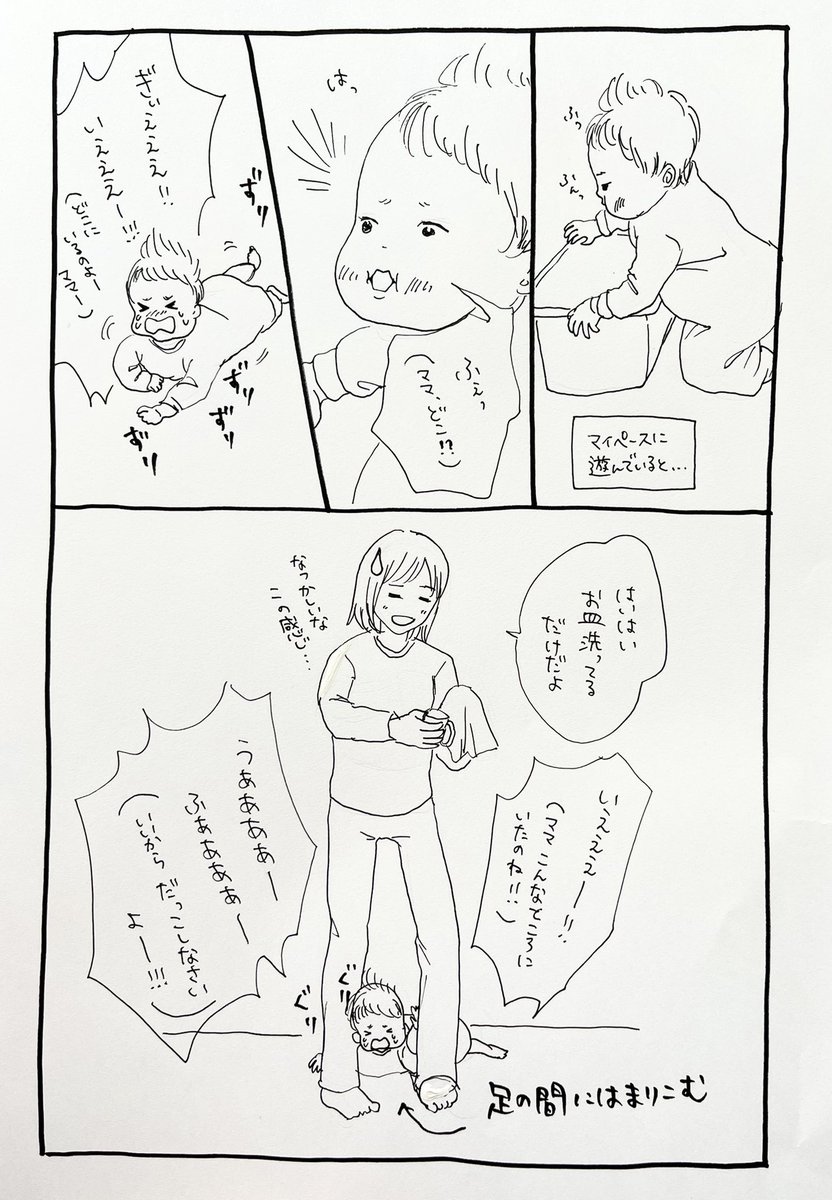 ふっ
ふんっ
マイペースに
遊んでいると…
はっ
ふえっ
(ママ、どこ!?)
ぎいえええ!!
いえええー!!!
(どこに
いるのよー
ママー)
ずり
ずり
ずり
ずり
はいはい
お皿洗ってる
だけだよ
なつかしいな
この感じ…
いえええー!!
(ママこんなところに
いたのね!!)
うああああー
ふああああー
(いいからだっこしなさい
よー!!!)
ぐり
ぐり
足の間にはまりこむ